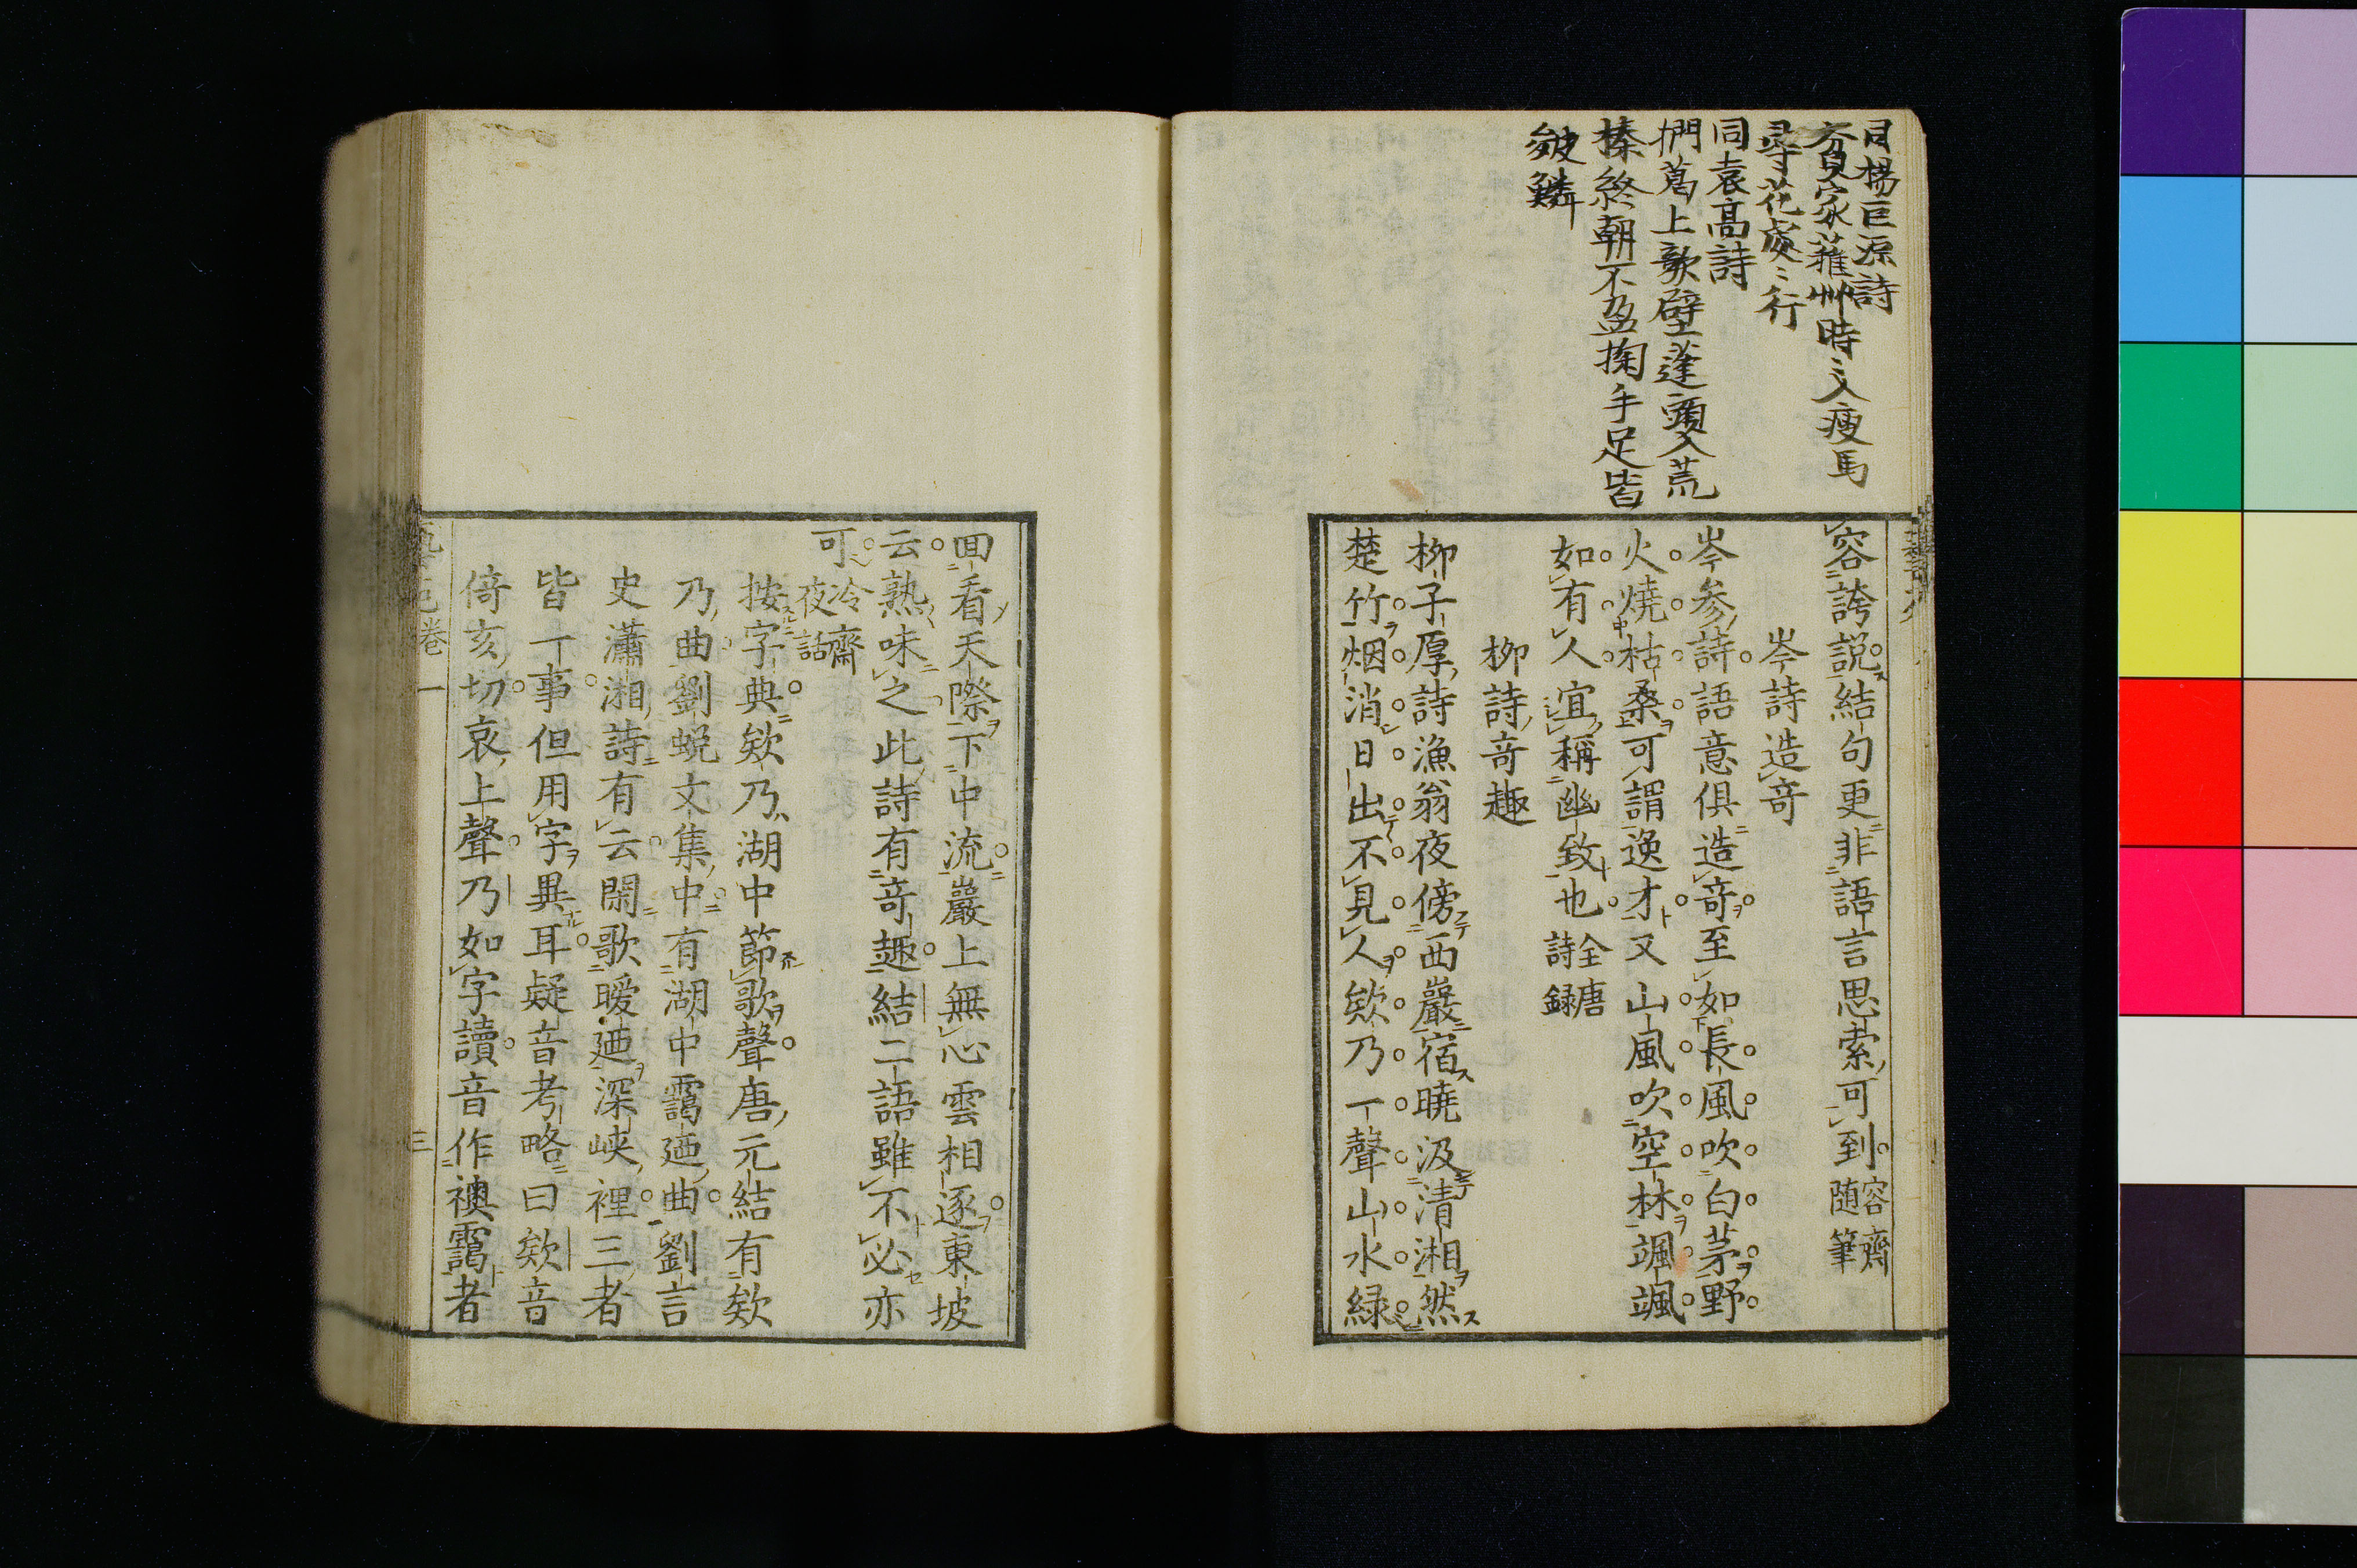 同楊巨源詩
貧家薙艸時〻入瘦馬
尋花處〻行
同袁高詩
捫葛上欹壁蓬頭入荒
榛終朝不盈掬手足皆
皴鱗
容誇説結句更非語言思索可到容齋随筆
岑詩造竒
岑参詩語意俱造竒至如長風吹白茅野
火燒枯桑可謂逸才又山風吹空林颯颯
如有人宜稱幽致也全唐詩録
柳詩竒趣
柳子厚詩漁翁夜傍西巖宿曉汲清湘然
楚竹烟消日出不見人欸乃一聲山水緑
回看天際下中流巖上無心雲相逐東坡
云熟味之此詩有竒趣結二語雖不必亦
可冷齋夜話
按字典欸乃湖中節歌聲唐元結有欸
乃曲劉蛻文集中有湖中靄廼曲劉言
史瀟湘詩有云閑歌曖廼深峽裡三者
皆一事但用字異耳疑音考略曰欸音
倚亥切哀上聲乃如字讀音作襖靄者
卷一
三